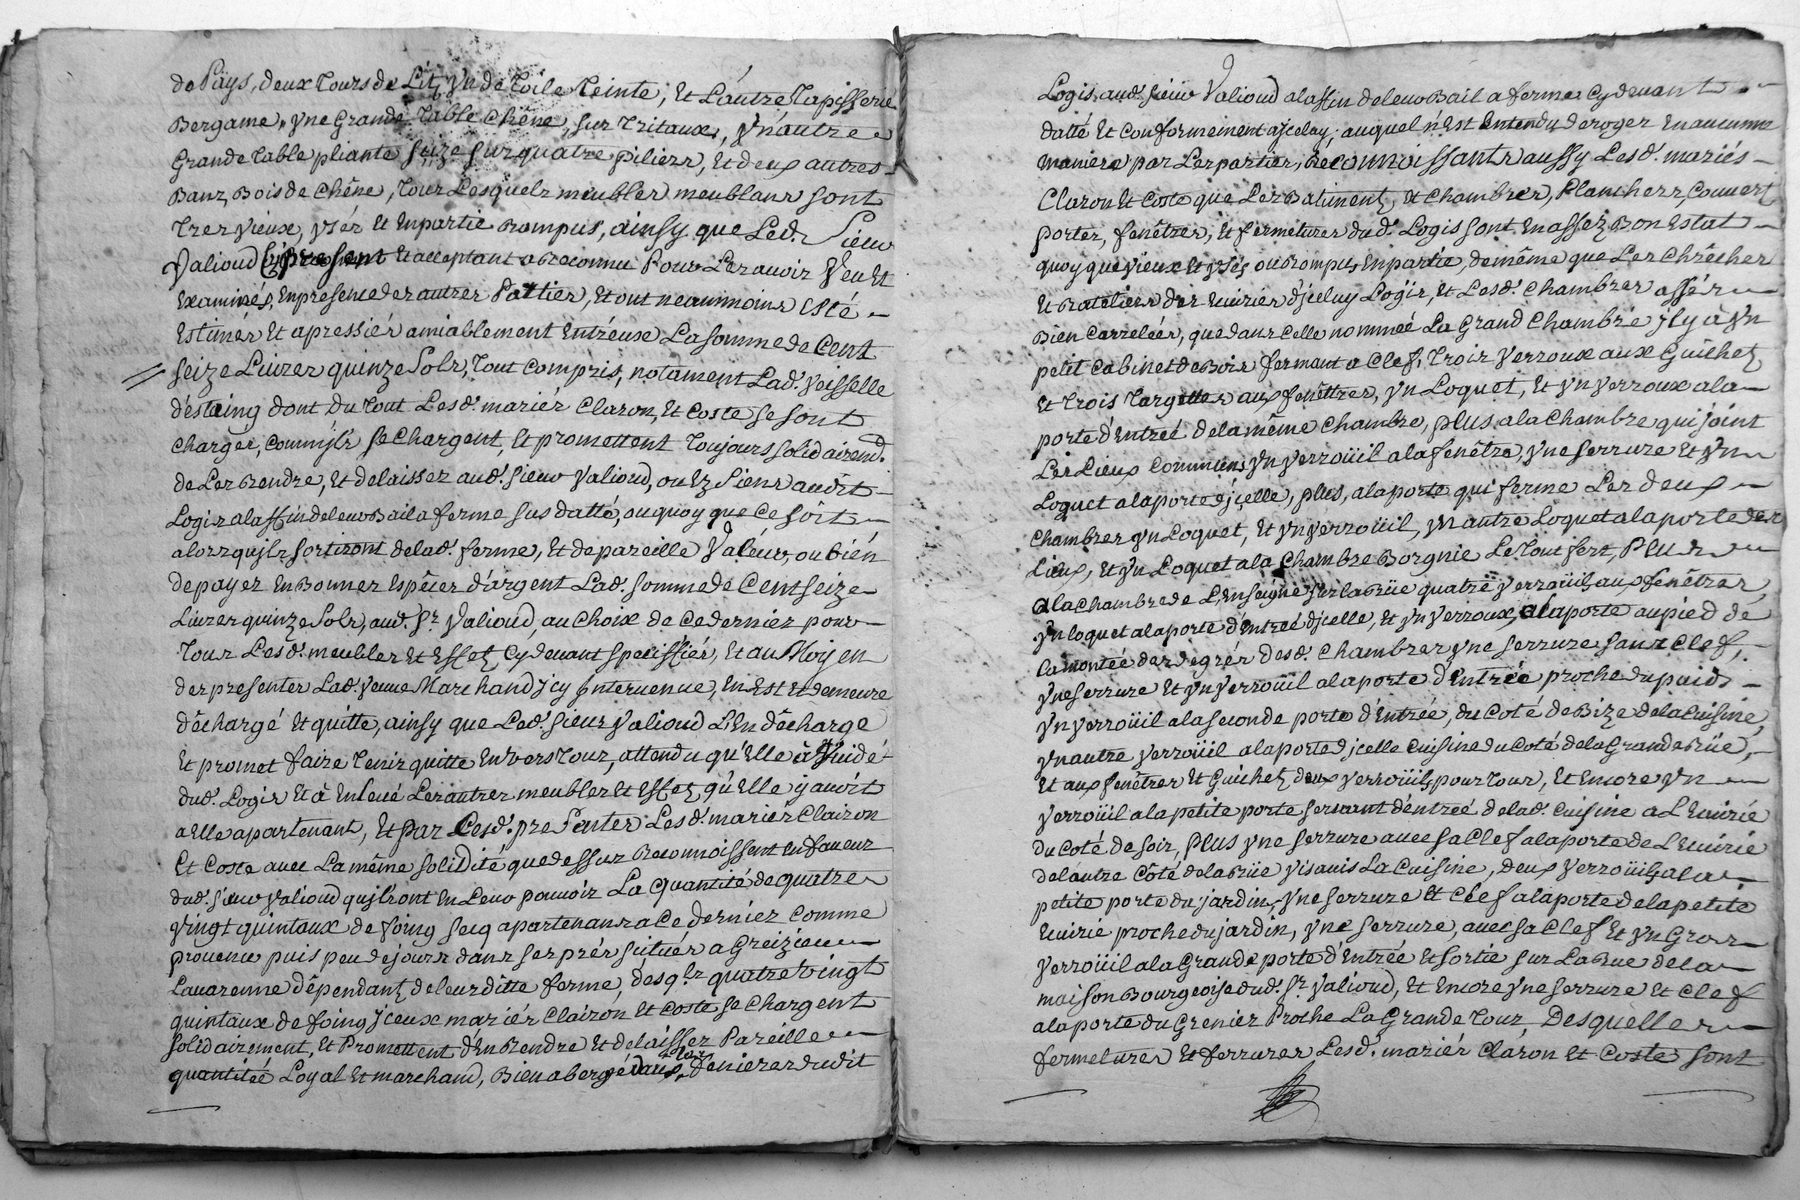 de Païs, deux tours de Lit, yn de toile teinte, et L'autre tapisserie
Bergame, yne Grande table chêne, sur tritaux, yn'autre
Grande table pliante size sur quatre piliers, et deux autres
Banz Bois de Chêne, tous Lesquels meubles meublans sont
tres vieux, ysés et en partie rompus, ainsy que Led. Sieur
Valioud cy présent et acceptant a reconnu Pour Les avoir veu et
examinés, en presence des autres Parties, et ont neaummoins esté
Estimés et apressiés amiablement entr'eux La somme de Cent
seize Livres quinze Sols, tout compris, notament Lad. veisselle
d'estaing dont du tout Lesd. mariés Claron, et Coste se sont
chargés, comm'jls se chargent, et promettent toujours solidairemt.
de Les Rendre, et delaisser aud. sieur Valioud, ou ez siens audit
Logis a la ffin de leur Bail a ferme sus datté, ou quoy que ce soit
alors qujls sortiront de lad. ferme, et de pareille valéur, ou bién
de payer en Bonnes Espêces d'argent Lad. somme de Cent seize
Livres quinze Sols, aud. Sr. Valioud, au choix de ce dernier pour
tous Lesd. meubles et effetz cy devant speciffiés, et au Moyen
des presentes Lad. veuve Marchand jcy jntervenue, en est et demeure
déchargé et quitte, ainsy que Led. sieur Valioud L'en décharge
et promet faire tenir quitte envers tous, attendu qu'elle à vuidé
dud. Logis et à enlevé Les autres meubles et effetz qu'elle y avoit
a elle apartenant, et par Cesd. presentes Lesd. mariés Clairon
et Coste avec La même solidité que dessus reconnoissent en faveur
dud. sieur Valioud qujls ont en Leur pouvoir La quantité de quatre
vingt quintaux de foing secq apartenans a ce dernier comme
provenu puis peu de jours dans ses prés situés a Greizieu
Lavarenne dépendantz de leur ditte ferme, desqls. quatre vingt
quintaux de foing jceux mariés Clairon et Coste se chargent
solidairement, et Promettent d'en Rendre et delaisser Pareille
quantitéé Loyal et marchand, Bien abergé dans les feniéres dudit
Logis, aud. sieur Valioud a la ffin de leur Bail a ferme cy devant
datté et conformement a jceluy, auquel n'est entendu deroger en aucunne
maniere par Les parties, Reconnoissants aussy Lesd. mariés
Claron et Coste que Les Batimentz, et Chambres, Planchers, Couvert
portes, fenêtres, et fermetures dud. Logis sont en assez bon Estat
quoy que vieux et ysés ou rompus en partie, de même que Les Chrêches
et rateliers des ecuries d'jceluy Logis, et Lesd. chambres assés
Bien Carreléés, que dans celle nomméé La Grand Chambre jl y à yn
petit Cabinet de Bois fermant a clef, trois verroux aux Guichetz
et trois targettes aux fenêttres, yn Loquet, et yn verroux a la
porte d'entréé de la même chambre, plus a la chambre qui joint
Les Lieux Communs yn verroüil a la fenêtre, yne serrure et yn
Loquet a la porte d'jçelle, plus, a la porte qui ferme Les deux
chambres yn Loquet, et yn verroüil, yn autre Loquet a la porte des
Lieux, et yn Loquet a la Chambre Borgnie Le tout fert, Plus
a la chambre de L'Enseigne sur la Rüe quatre verroüils aux fenêtres,
yn loquet a la porte d'entréé d'jcelle, et yn verroux, a la porte au pied de
la montéé des degrés desd. chambres yne serrure sans clef,
yne serrure et yn verroüil a la porte d'entréé, proche du puids
yn verroüil a la seconde porte d'entréé, du coté de Bize de la cuisine,
yn autre verroüil a la porte d'jcelle cuisine du coté de la Grande Rüe,
et aux fenêtres et Guichetz deux verroüils pour tous, et encore yn
verroüil a la petite porte servant d'entréé de lad. cuisine a L'ecurie
du coté de soir, Plus yne serrure avec sa clef a la porte de L'ecurie
de l'autre côté de la Rüe vis a vis La Cuisine, deux verroüils a la
petite porte du jardin, yne serrure et clef a la porte de la petite
Ecurie proche du jardin, yne serrure, avec sa clef et yn Gros
verroüil a la Grande porte d'entréé et sortie sur La Rue de la
maison Bourgeoise dud. Sr. Valioud, et encore yne serrure et clef
a la porte du Grenier Proche La Grande Cour, Desquelles
fermetures et ferrures Lesd. mariés Claron et Coste sont